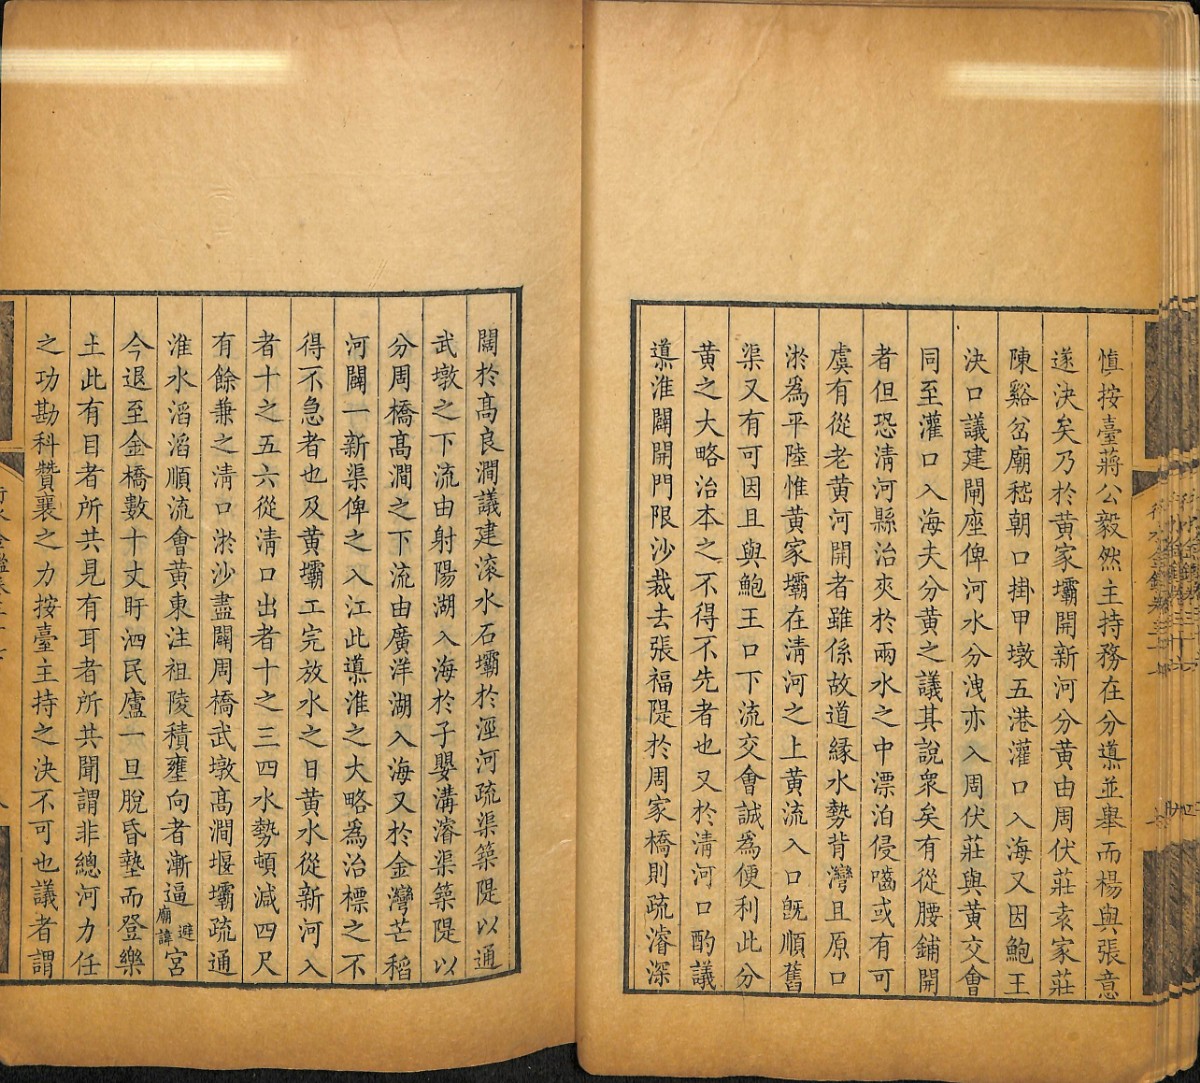 慎按臺蔣公毅然主持務在分導並舉而楊與張意
遂決矣乃於黃家壩開新河分黃由周伏莊袁家莊
陳谿岔廟嵇朝口掛甲墩五港灌口入海又因鮑王
決口議建閘座俾河水分洩亦入周伏莊與黃交會
同至灌口入海夫分黃之議其說衆矣有從腰鋪開
者但恐清河縣治夾於兩水之中漂泊侵嚙或有可
虞有從老黃河開者雖係故道緣水勢背灣且原口
淤爲平陸惟黃家壩在清河之上黃流入口旣順舊
渠又有可因且與鮑王口下流交會誠爲便利此分
黃之大略治本之不得不先者也又於清河口酌議
導淮闢開門限沙裁去張福隄於周家橋則疏濬深
闊於高良澗議建滾水石壩於涇河疏渠築隄以通
武墩之下流由射陽湖入海於子嬰溝濬渠築隄以
分周橋高澗之下流由廣洋湖入海又於金灣芒稻
河闢一新渠俾之入江此導淮之大略爲治標之不
得不急者也及黃壩工完放水之日黃水從新河入
者十之五六從清口出者十之三四水勢頓減四尺
有餘兼之清口淤沙盡闢周橋武墩高澗堰壩疏通
淮水滔滔順流會黃東注祖陵積壅向者漸逼避廟諱宮
今退至金橋數十丈盱泗民廬一旦脫昏墊而登樂
土此有目者所共見有耳者所共聞謂非總河力任
之功勘科贊襄之力按臺主持之決不可也議者謂